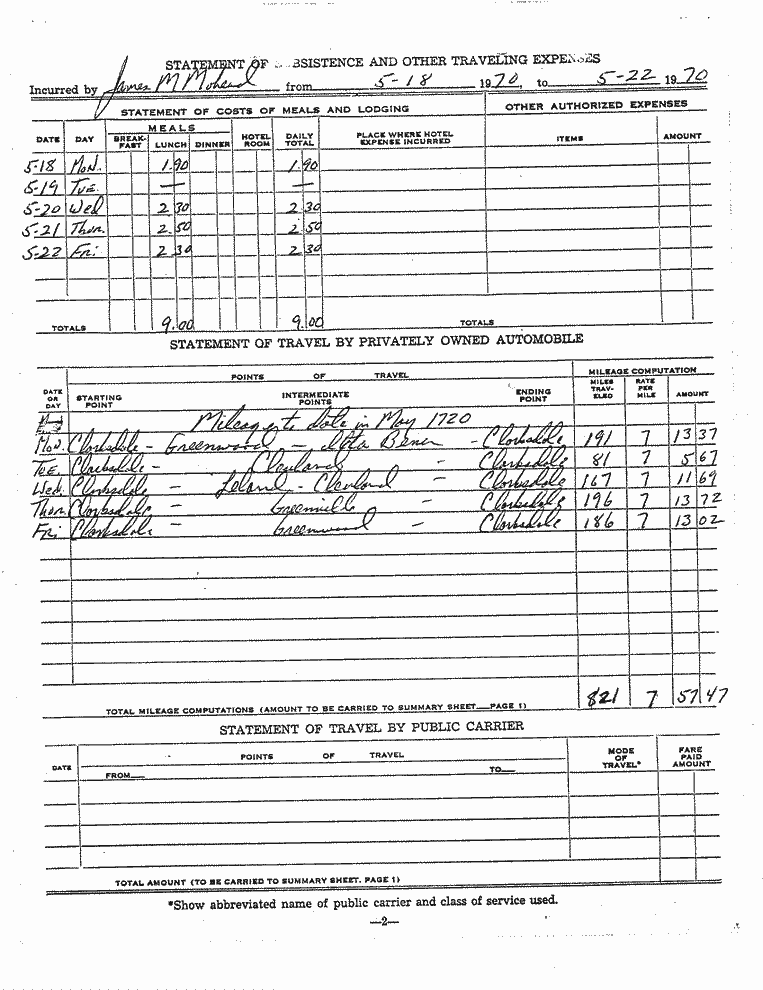 STATEMENT OF BSISTENCE AND OTHER TRAVELING EXPENSES
Incurred by James M Mohead from 5-18 1970, to 5-22 1970
STATEMENT OF COSTS OF MEALS AND LODGING OTHER AUTHORIZED EXPENSES
DATE DAY MEALS BREAK-FAST LUNCH DINNER HOTEL ROOM DAILY TOTAL PLACE WHERE HOTEL EXPENSE INCURRED ITEMS AMOUNT
5-18 Mon. 1.90 1.90
5-19 Tue. — —
5-20 Wed 2 30 2 30
5-21 Thon. 2.50 2 50
5-22 Fri 2 30 2 30
TOTALS 9.00 9.00 TOTALS
STATEMENT OF TRAVEL BY PRIVATELY OWNED AUTOMOBILE
POINTS OF TRAVEL MILEAGE COMPUTATION
DATE OR DAY STARTING POINT INTERMEDIATE POINTS ENDING POINT MILES TRAV-ELED RATE PER MILE AMOUNT
Mileage to date in May 1720
Mon. Clarksdale - Greenwood - Itta Bena - Clarksdale 191 7 13 37
Tue. Clarksdale - Cleveland - Clarksdale 81 7 5 67
Wed. Clarksdale - Leland - Cleveland - Clarksdale 167 7 11 69
Thon. Clarksdale - Greenville - Clarksdale 196 7 13 72
Fri Clarksdale - Greenwood - Clarksdale 186 7 13 02
TOTAL MILEAGE COMPUTATIONS (AMOUNT TO BE CARRIED TO SUMMARY SHEET—PAGE 1) 821 7 57 47
STATEMENT OF TRAVEL BY PUBLIC CARRIER
DATE POINTS OF TRAVEL MODE OF TRAVEL* FARE PAID AMOUNT
FROM TO
TOTAL AMOUNT (TO BE CARRIED TO SUMMARY SHEET. PAGE 1)
*Show abbreviated name of public carrier and class of service used.
—2—